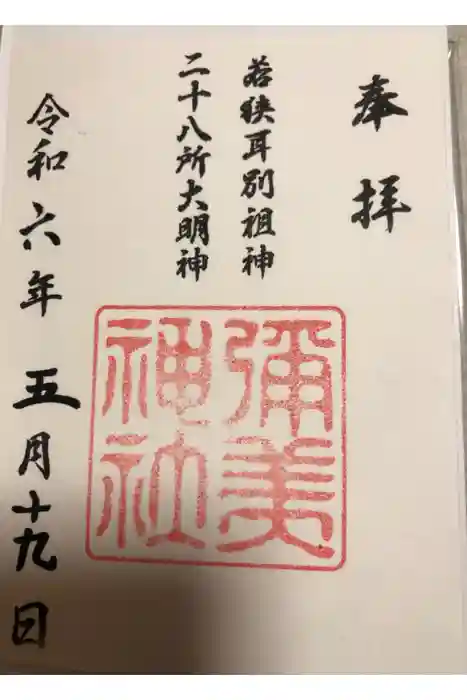 奉拝
若狭耳別祖神
二十八所大明神
彌美
神社
令和六年五月十九日